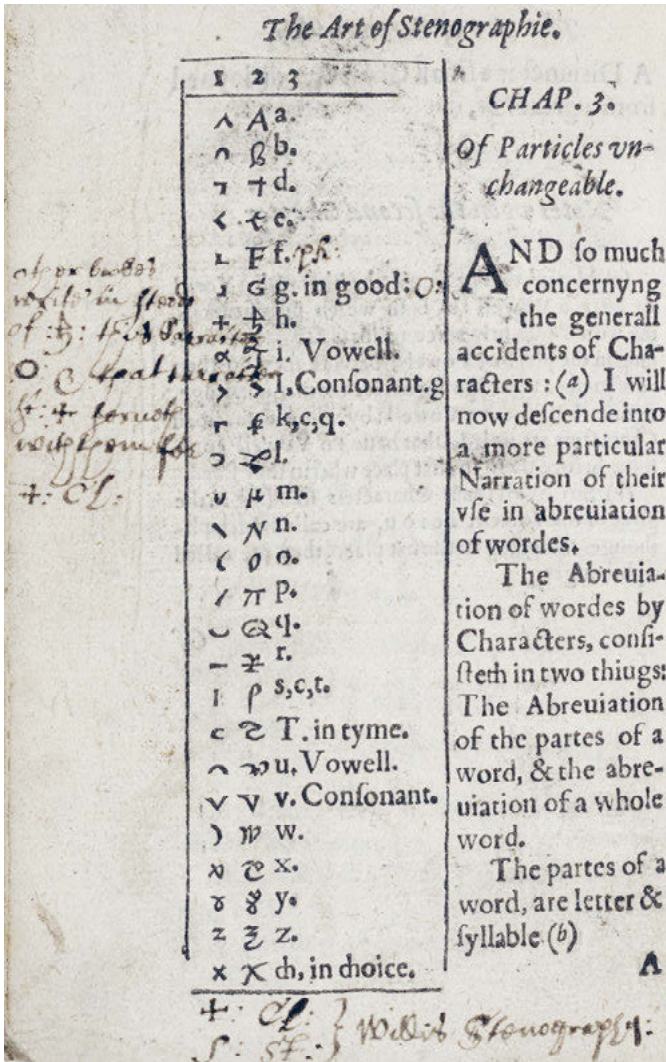 The Art of Stenographie.
1 2 3
a.
b.
d.
e.
f. ph:
g. in good: O:
h.
i. Vowell.
I, Conſonant. g
k,c,q.
l.
m.
n.
o.
p.
q.
r.
s,c,t.
T. in tyme.
u. Vowell.
v. Conſonant.
w.
x.
y.
z.
ch, in choice.
CHAP. 3.
Of Particles vn-
changeable.
AND ſo much
concernyng
the generall
accidents of Cha-
racters : (a) I will
now deſcende into
a more particular
Narration of their
vſe in abreuiation
of wordes.
The Abreuia-
tion of wordes by
Characters, conſi-
ſteth in two thiugs:
The Abreuiation
of the partes of a
word, & the abre-
uiation of a whole
word.
The partes of a
word, are letter &
ſyllable (b)
A
of
+: Cl:
+: Cl:
Willis Stenography.
s: st: